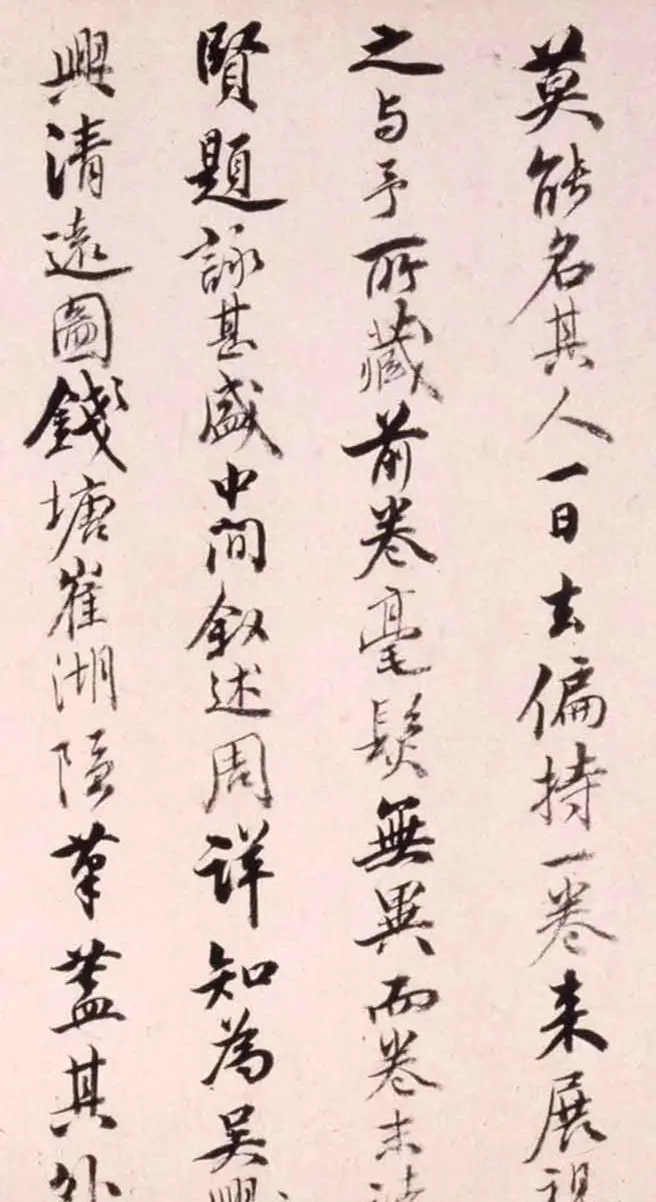 莫能名其人一日去偏持一卷来展視
之与予所藏前卷毫髮無異而卷末諸
賢題詠甚盛中間叙述周詳知為吴興
興清遠圖錢塘崔湖隠筆蓋其外